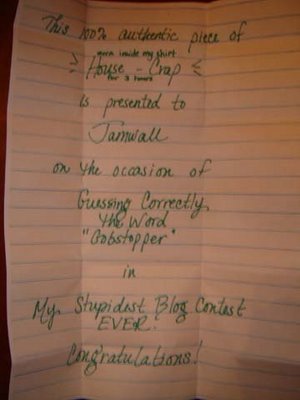 This 100% authentic piece of
worn inside my shirt
House - Crap
for 3 hours
is presented to
Jamwall
on the occasion of
Guessing Correctly,
the Word
"Gobstopper"
in
My Stupidest Blog Contest
EVER.
Congratulations!